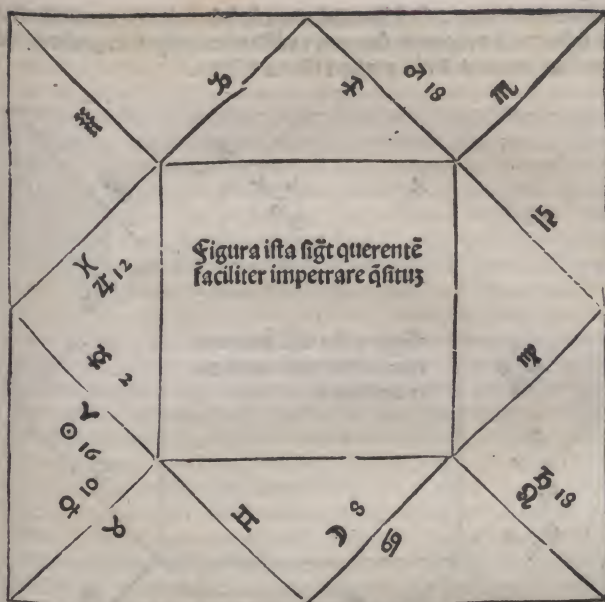 ♑
♐
♂ 18
♏
♒
♎
Figura iſta ſigt̄ querentē
faciliter impetrare q̄ſituʒ
♓
♃ 12
☿ 2
♍
♈
☉ 16
♀ 10
♉
♊
☽ 8
♋
♌ ♄ 18